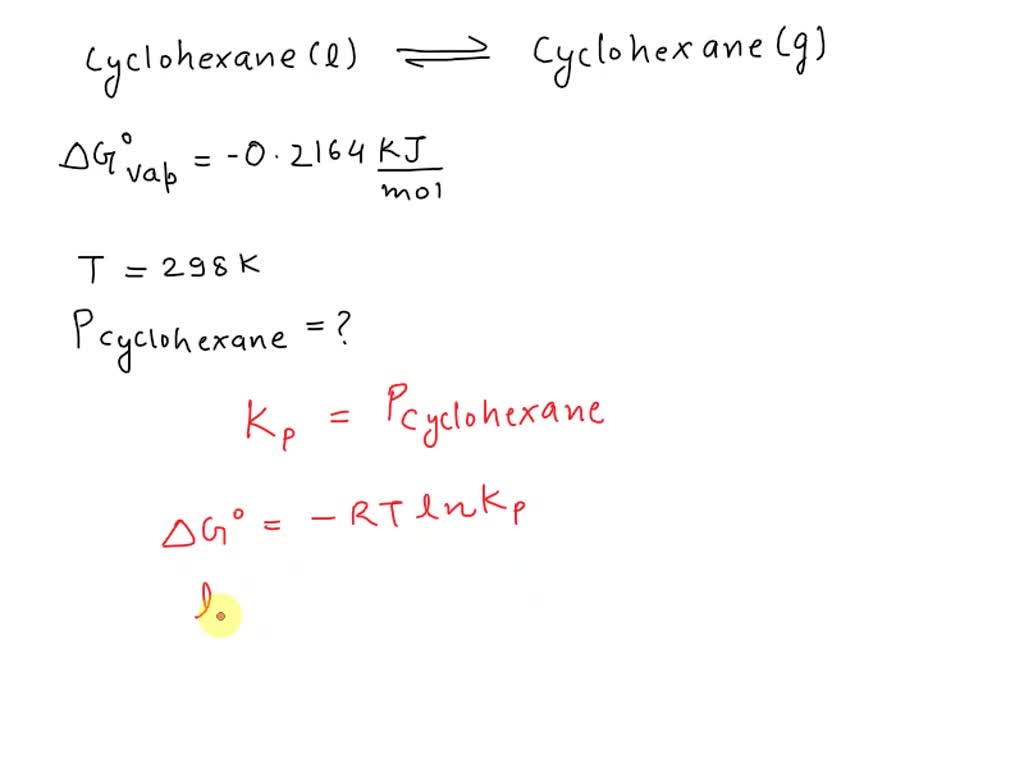 Cyclohexane (l) ⇌ Cyclohexane (g)
ΔG°vap = -0.2164 KJ/mol
T = 298 K
Pcyclohexane = ?
Kp = Pcyclohexane
ΔG° = - RT ln Kp
l